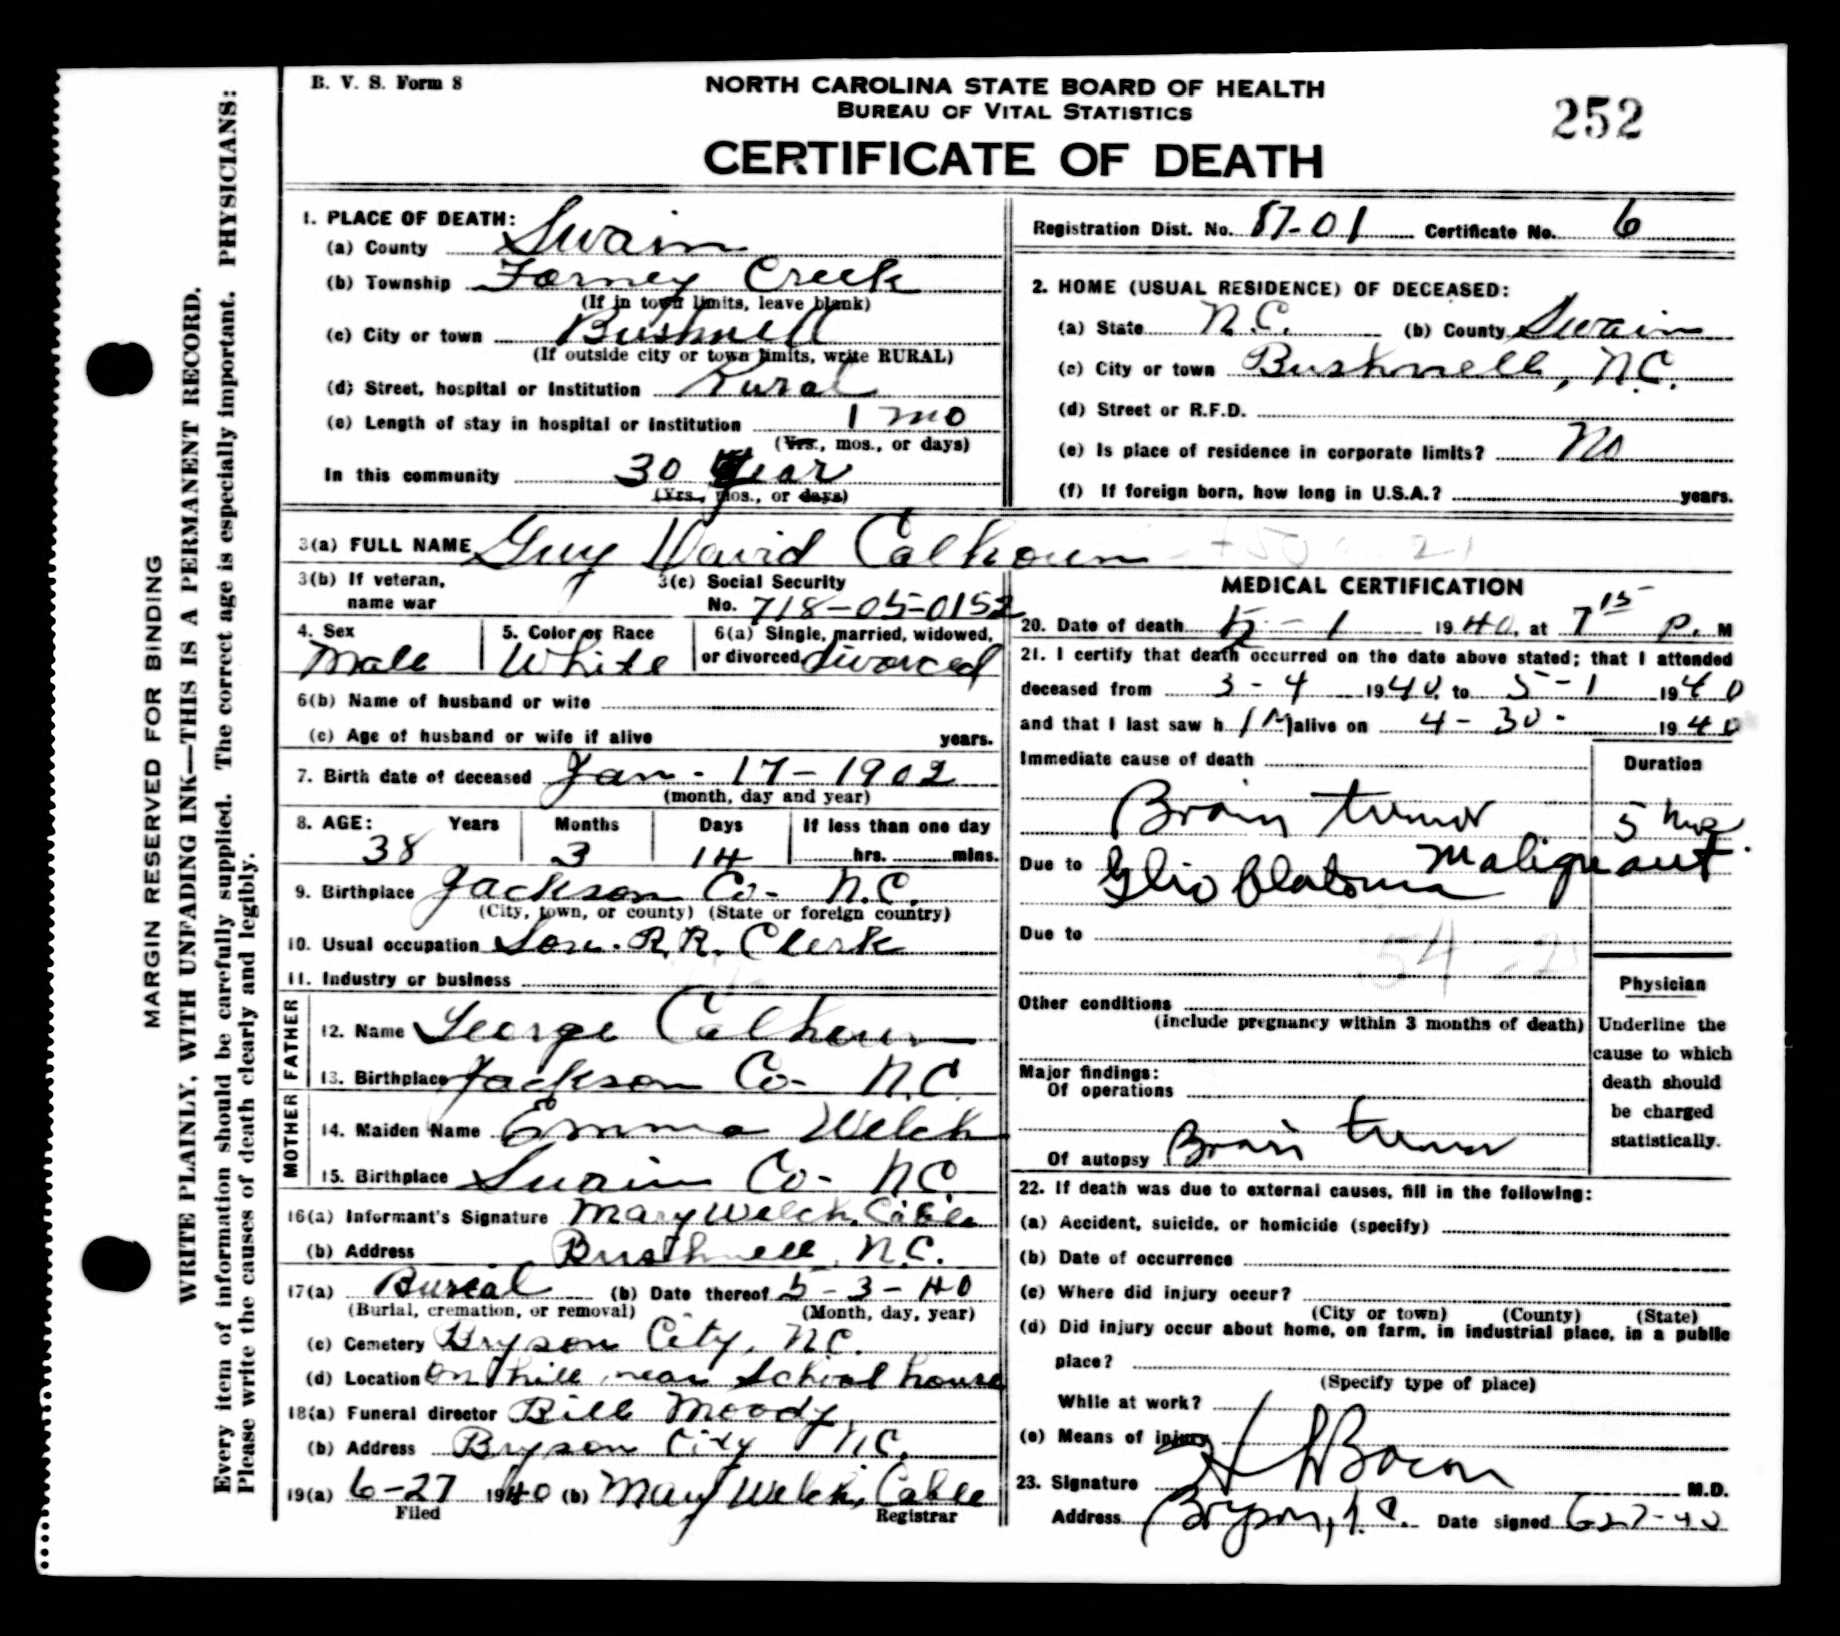 B. V. S. Form 8
NORTH CAROLINA STATE BOARD OF HEALTH
BUREAU OF VITAL STATISTICS
252
CERTIFICATE OF DEATH
MARGIN RESERVED FOR BINDING
WRITE PLAINLY, WITH UNFADING INK—THIS IS A PERMANENT RECORD.
Every item of information should be carefully supplied. The correct age is especially important. PHYSICIANS:
Please write the causes of death clearly and legibly.
1. PLACE OF DEATH:
(a) County Swain
(b) Township Forney Creek
(If in town limits, leave blank)
(c) City or town Bushnell
(If outside city or town limits, write RURAL)
(d) Street, hospital or institution Rural
(e) Length of stay in hospital or institution 1 mo
(Yrs., mos., or days)
In this community 30 year
(Yrs., mos., or days)
Registration Dist. No. 87-01 Certificate No. 6
2. HOME (USUAL RESIDENCE) OF DECEASED:
(a) State N.C. (b) County Swain
(c) City or town Bushnell, N.C.
(d) Street or R.F.D.
(e) Is place of residence in corporate limits? No
(f) If foreign born, how long in U.S.A.? years.
3(a) FULL NAME Guy David Calhoun
3(b) If veteran, name war
3(c) Social Security No. 718-05-0152
4. Sex Male
5. Color or Race White
6(a) Single, married, widowed, or divorced divorced
6(b) Name of husband or wife
(c) Age of husband or wife if alive years.
7. Birth date of deceased Jan - 17 - 1902
(month, day and year)
8. AGE: Years Months Days If less than one day
38 3 14 hrs. mins.
9. Birthplace Jackson Co- N.C.
(City, town, or county) (State or foreign country)
10. Usual occupation Sou. R.R. Clerk
11. Industry or business
FATHER
12. Name George Calhoun
13. Birthplace Jackson Co- N.C.
MOTHER
14. Maiden Name Emma Welch
15. Birthplace Swain Co- N.C.
16(a) Informant's Signature Mary Welch Cable
(b) Address Bushnell, N.C.
17(a) Burial (b) Date thereof 5-3-40
(Burial, cremation, or removal) (Month, day, year)
(c) Cemetery Bryson City, N.C.
(d) Location On hill near School house
18(a) Funeral director Bill Moody
(b) Address Bryson City N.C.
19(a) 6-27 1940 (b) Mary Welch Cable
Filed Registrar
MEDICAL CERTIFICATION
20. Date of death 5-1 1940, at 7 15 P. M
21. I certify that death occurred on the date above stated; that I attended
deceased from 3-4 1940, to 5-1 1940
and that I last saw h IM alive on 4-30- 1940
Immediate cause of death
Duration
Brain tumor 5 mos
Due to Glioblatoma Malignant.
Due to
Other conditions
(include pregnancy within 3 months of death)
Major findings:
Of operations
Of autopsy Brain tumor
Physician
Underline the
cause to which
death should
be charged
statistically.
22. If death was due to external causes, fill in the following:
(a) Accident, suicide, or homicide (specify)
(b) Date of occurrence
(c) Where did injury occur?
(City or town) (County) (State)
(d) Did injury occur about home, on farm, in industrial place, in a public
place?
(Specify type of place)
While at work?
(e) Means of injury
23. Signature Bacon M.D.
Address Bryson, N.C. Date signed 6-27-40